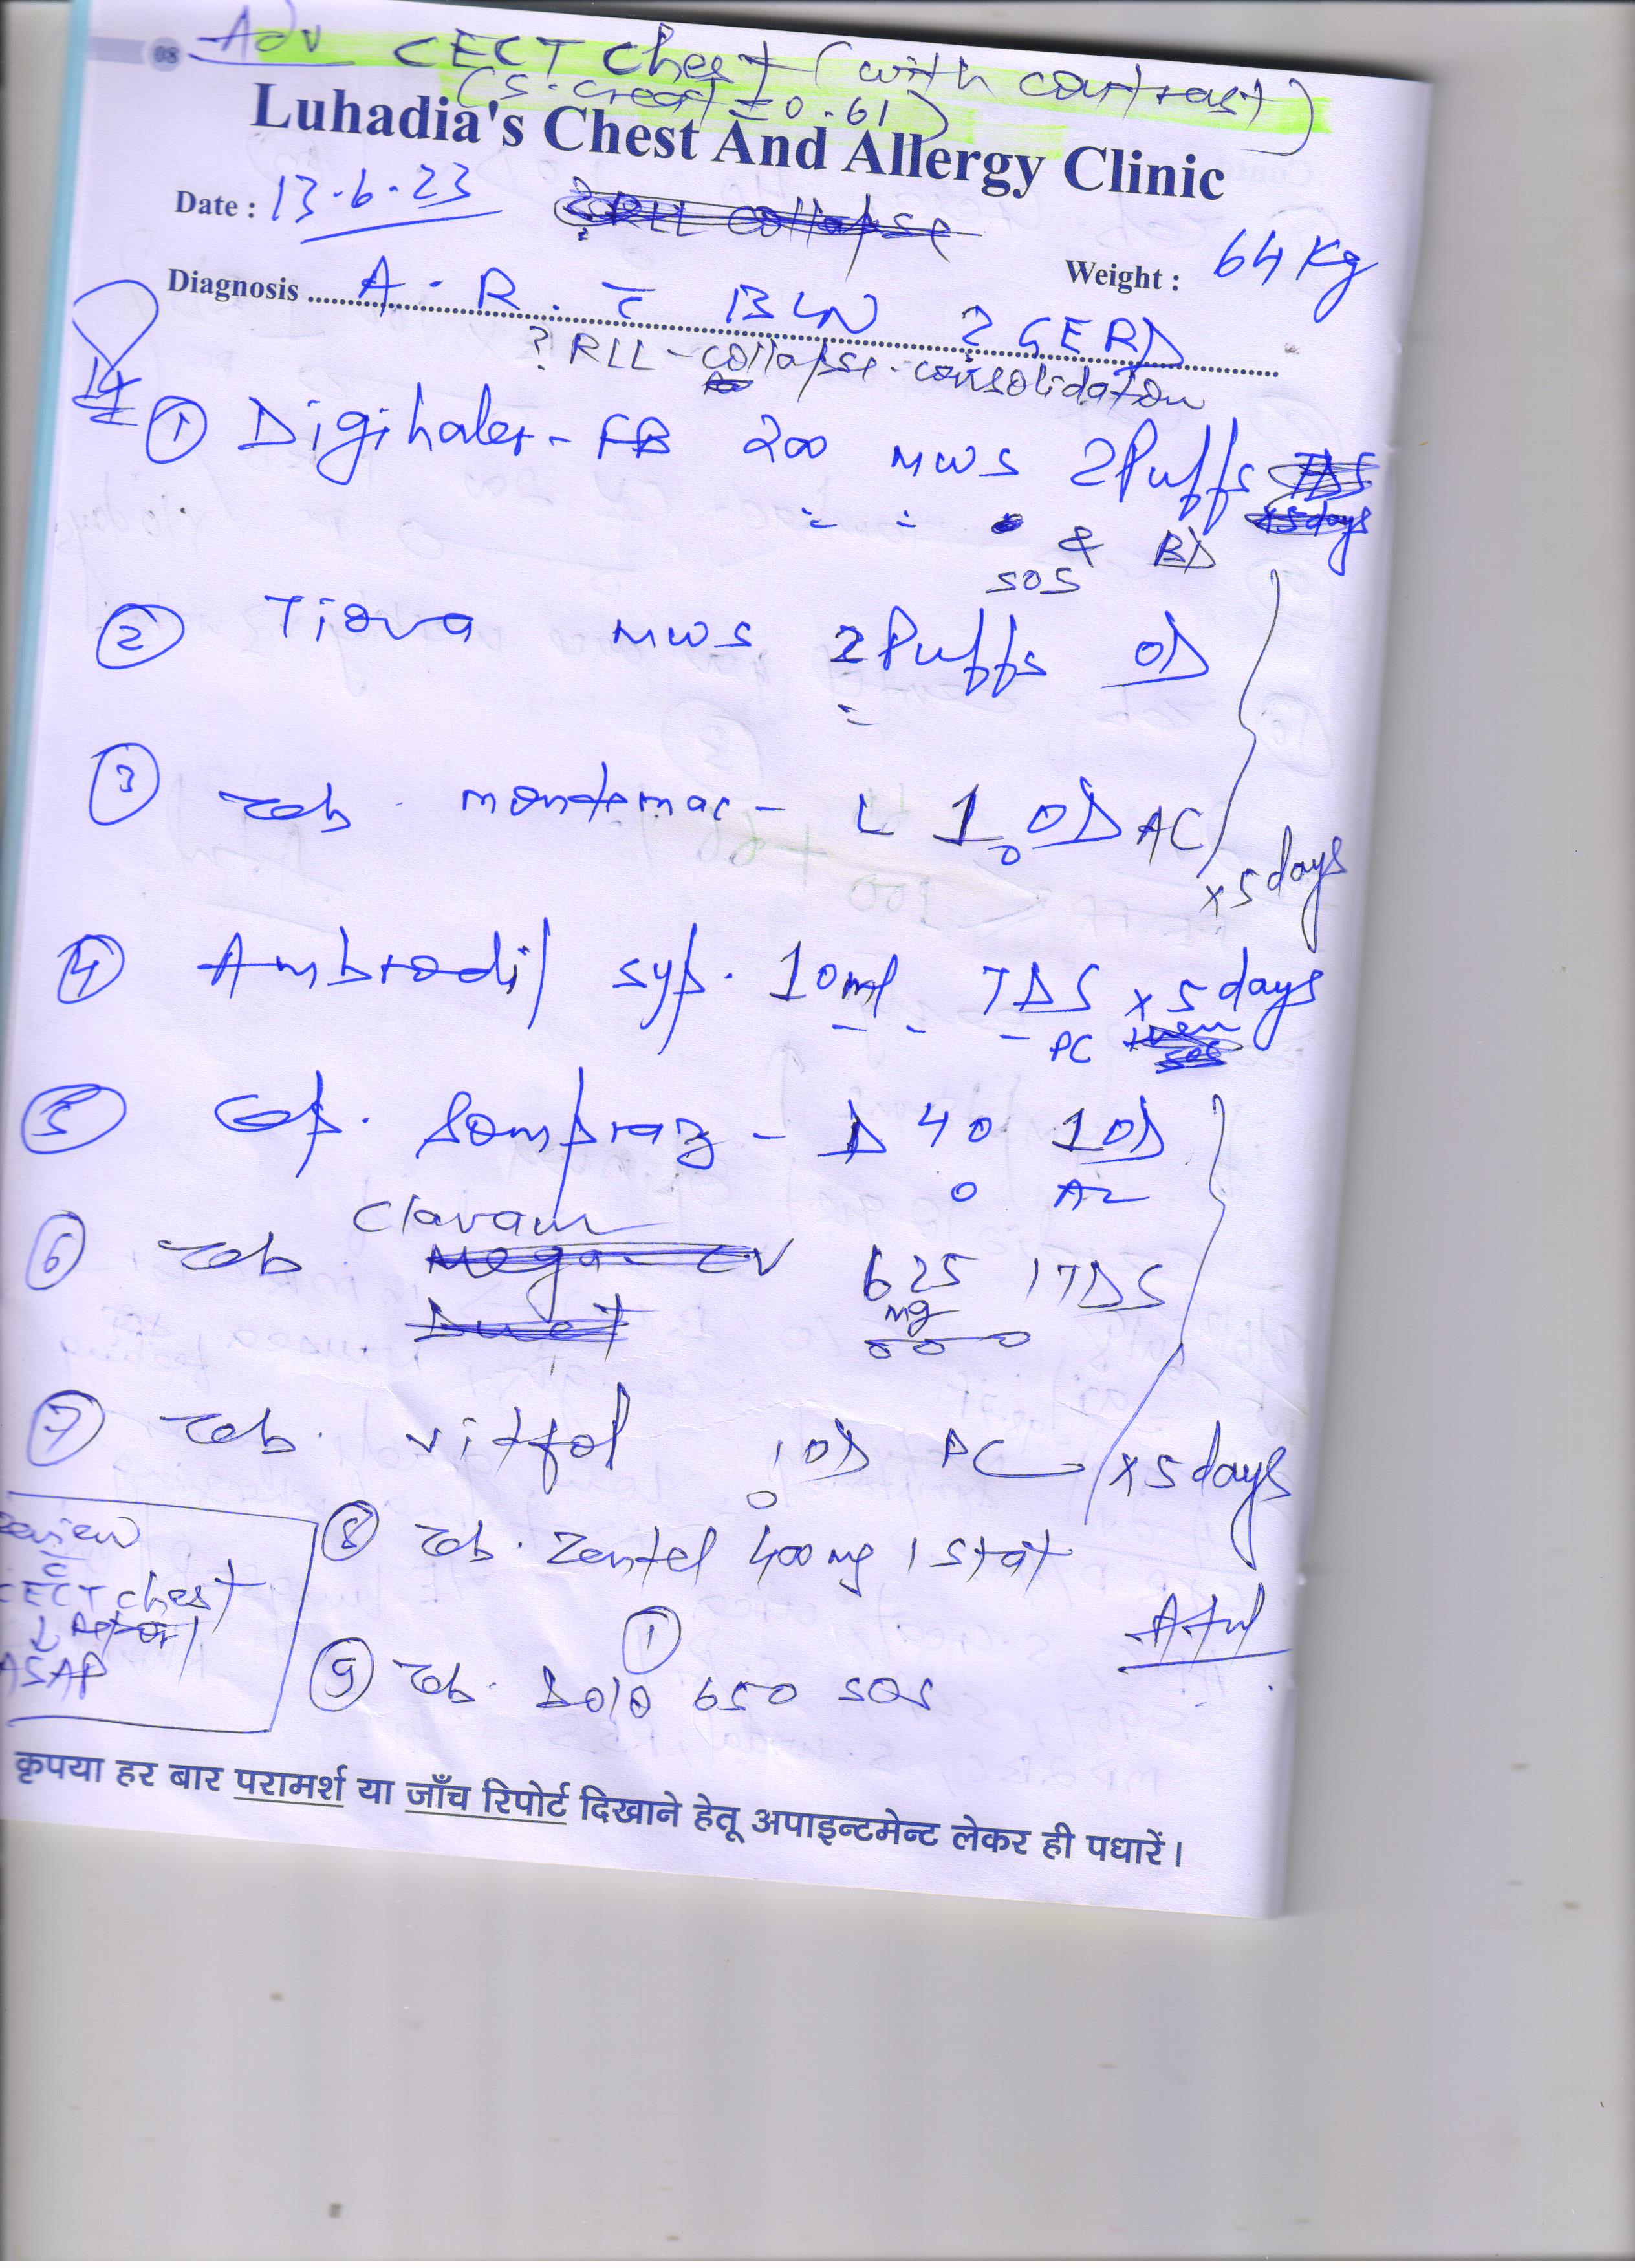 08 Adv CECT Chest (with contrast)
(S. Creat = 0.61)
Luhadia's Chest And Allergy Clinic
Date : 13.6.23
? RLL collapse
Weight : 64 Kg
Diagnosis A.R. c̄ BLN ? GERD
? RLL - collapse - consolidation
① Digihaler - FB 200 MWS 2 Puffs TDS
x 5 days
& BD
SOS
② Tiova MWS 2 Puffs OD
③ Tab. montemac - L 1 OD AC
x 5 days
④ Ambrodil syp. 10 ml TDS x 5 days
PC then
SOS
⑤ Cap. Sompraz - D 40 1 OD
AC
Clavam
⑥ Tab. Mega - CV 625 1 TDS
mg
Duet
⑦ Tab. vitfol 1 OD PC x 5 days
⑧ Tab. Zentel 400 mg 1 Stat
①
⑨ Tab. Dolo 650 SOS
Review
c̄
CECT chest
Report
ASAP
कृपया हर बार परामर्श या जाँच रिपोर्ट दिखाने हेतू अपाइन्टमेन्ट लेकर ही पधारें।